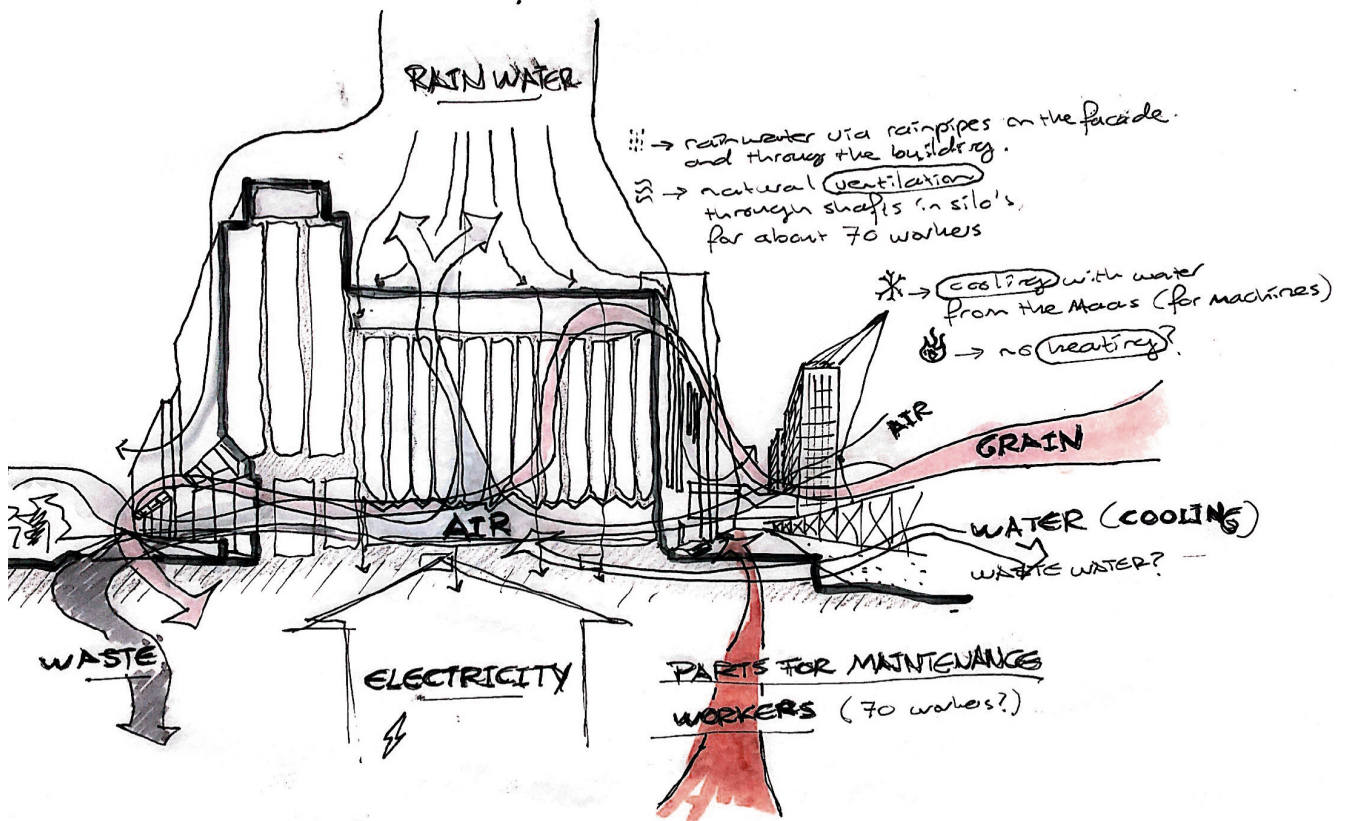 RAIN WATER
→ rainwater via rainpipes on the facade.
and through the building.
→ natural ventilation
through shafts in silo's,
for about 70 workers
→ cooling with water
from the Maas (for machines)
→ no heating?
AIR
GRAIN
AIR
WATER (COOLING)
WASTE WATER?
WASTE
ELECTRICITY
PARTS FOR MAINTENANCE
WORKERS (70 workers?)